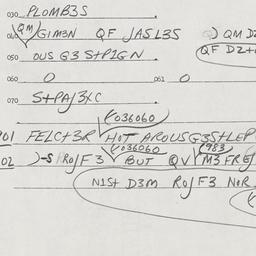 030 PLOMB3S
040 QM GIM3N QF JASL3S ) QM DZ
050 OUS G3 S+P1GN QF DZ+
060 0 061 0
070 S+PAJ3XC
036060
901 FELC+3R HOT AROUSG3S+LEP
036060 983
02 )-S ROJF3 BUT QV M3 FREJ
N1S+ D3M ROJF3 NOR